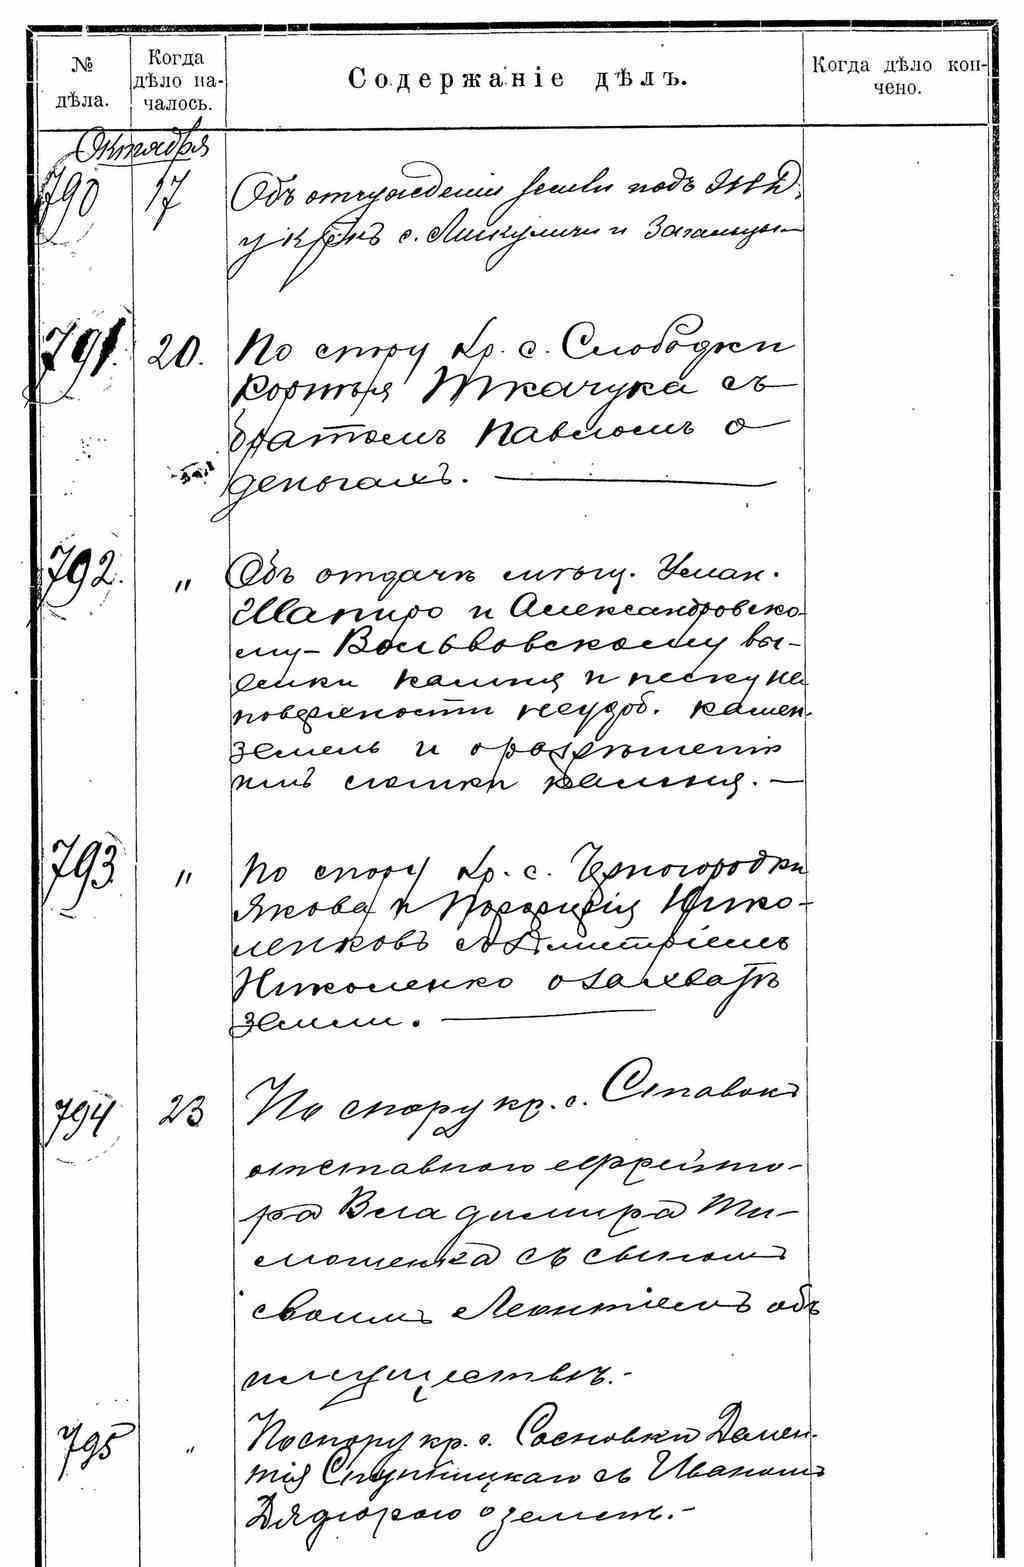 № дѣла.
Когда дѣло на-
чалось.
Содержаніе дѣлъ.
Когда дѣло кон-
чено.
Октября
790 17 Объ отчужденіи земли подъ
у кр-нъ с. Микуличи и Загальцы
791. 20. По спору кр. с. Слободки
Ткачука съ
братомъ Павломъ о
деньгахъ.
792. " Объ отдачѣ мѣщ. Уман.
Шапиро и Александровско-
му-Вольвовскому вы-
емки камня и песку на
поверхности неудоб. камен.
земель и о разрѣшеніи
имъ ломки камня.
793. " По спору кр. с. Черногородки
Якова и Порфирія Нико-
ленковъ съ Дмитріемъ
Николенко о захватѣ
земли.
794 23 По спору кр. с. Ставокъ
отставного ефрейто-
ра Владимира Ти-
мошенка съ сыномъ
своимъ Леонтіемъ объ
имуществѣ.-
795 " По спору кр. с. Сосновки Домен-
тія Ступницкаго съ Иваномъ
о землѣ.-